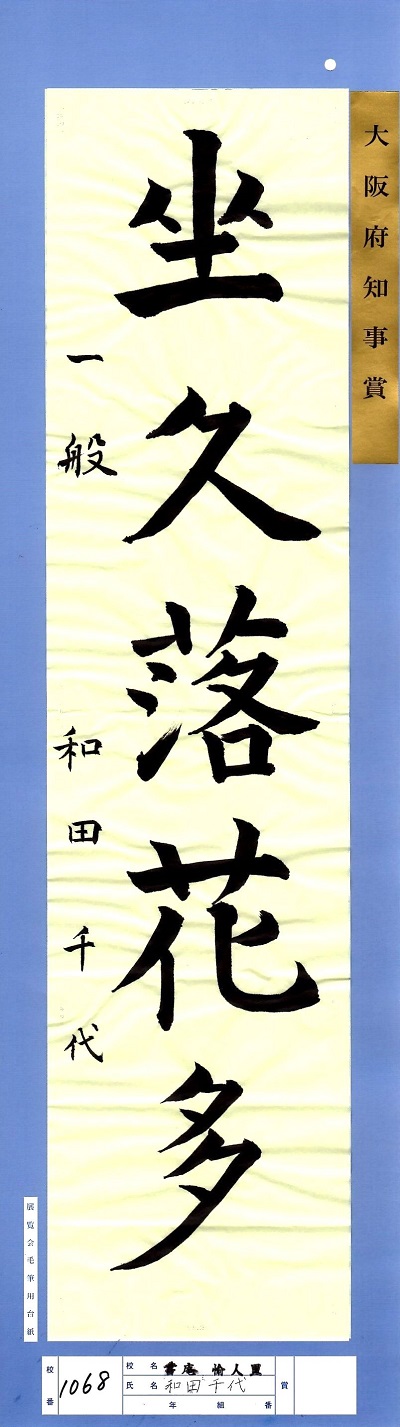 大阪府知事賞
坐久落花多
一般 和田千代
展覧会毛筆用台紙
校番 1068
校名 書庵 愉人里
氏名 和田千代
年 組 番
賞